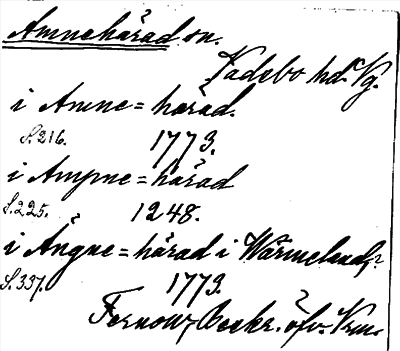 Amnehärad sn.
Vadsbo hd. Vg.
i Amne=härad.
S. 216. 1773.
i Ampne=härad
S. 225. 1248.
i Ångne=härad i Wärmeland?
S. 337. 1773.
Fernow, Beskr. öfv. Vrm.